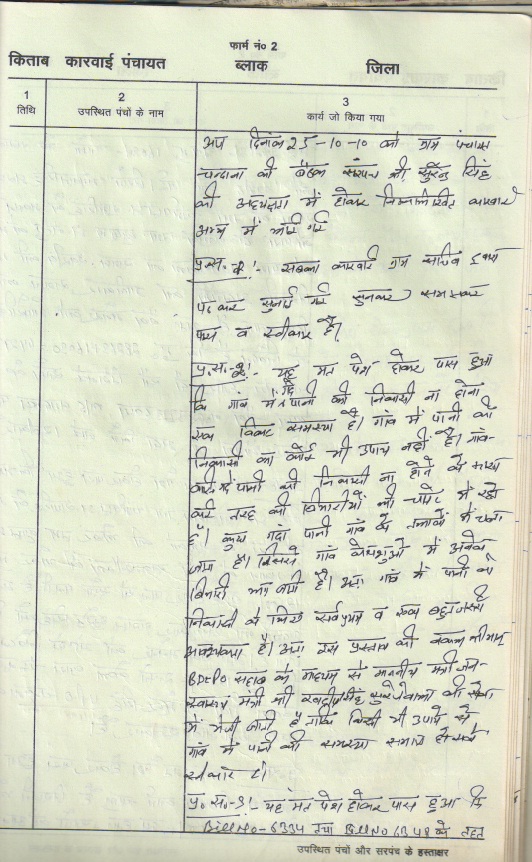 फार्म नं० 2
किताब कारवाई पंचायत ब्लाक जिला
1 2 3
तिथि उपस्थित पंचों के नाम कार्य जो किया गया
आज दिनांक 25-10-10 को ग्राम पंचायत
की बैठक सरपंच श्री सुरेन्द्र सिंह
की अध्यक्षता में होकर निम्नलिखित कारवाई
में गई
प्र.स.- कारवाई ग्राम सचिव द्वारा
पढ़कर सुनाई गई सुनकर समझकर
पास व स्वीकार है।
प्र.स.- यह मत पेश होकर पास हुआ
कि गांव में गंदे पानी की निकासी ना होना
एक विकट समस्या है। गांव में पानी की
निकासी का कोई भी उपाय नहीं है। गांव-
पानी की निकासी ना होने के
कई तरह की बिमारीयों की चपेट में
है। गंदा पानी गांव के तलाबों में चला
जाता है। जिससे गांव के पशुओं में अनेक
बिमारी आ जाती है। अतः गांव में पानी की
निकासी के लिए सर्वप्रथम व
आवश्यकता है। अतः इस प्रस्ताव की नकल
BDPO साहब के माध्यम से माननीय मंत्री
मंत्री श्री की सेवा
में भेजी जाती है ताकि किसी भी उपाय से
गांव में पानी की समस्या समाप्त हो सके
स्वीकार है।
प्र.स.-3! यह मत पेश होकर पास हुआ कि
Bill No-6334 तथा Bill No 6348 के तहत
उपस्थित पंचों और सरपंच के हस्ताक्षर